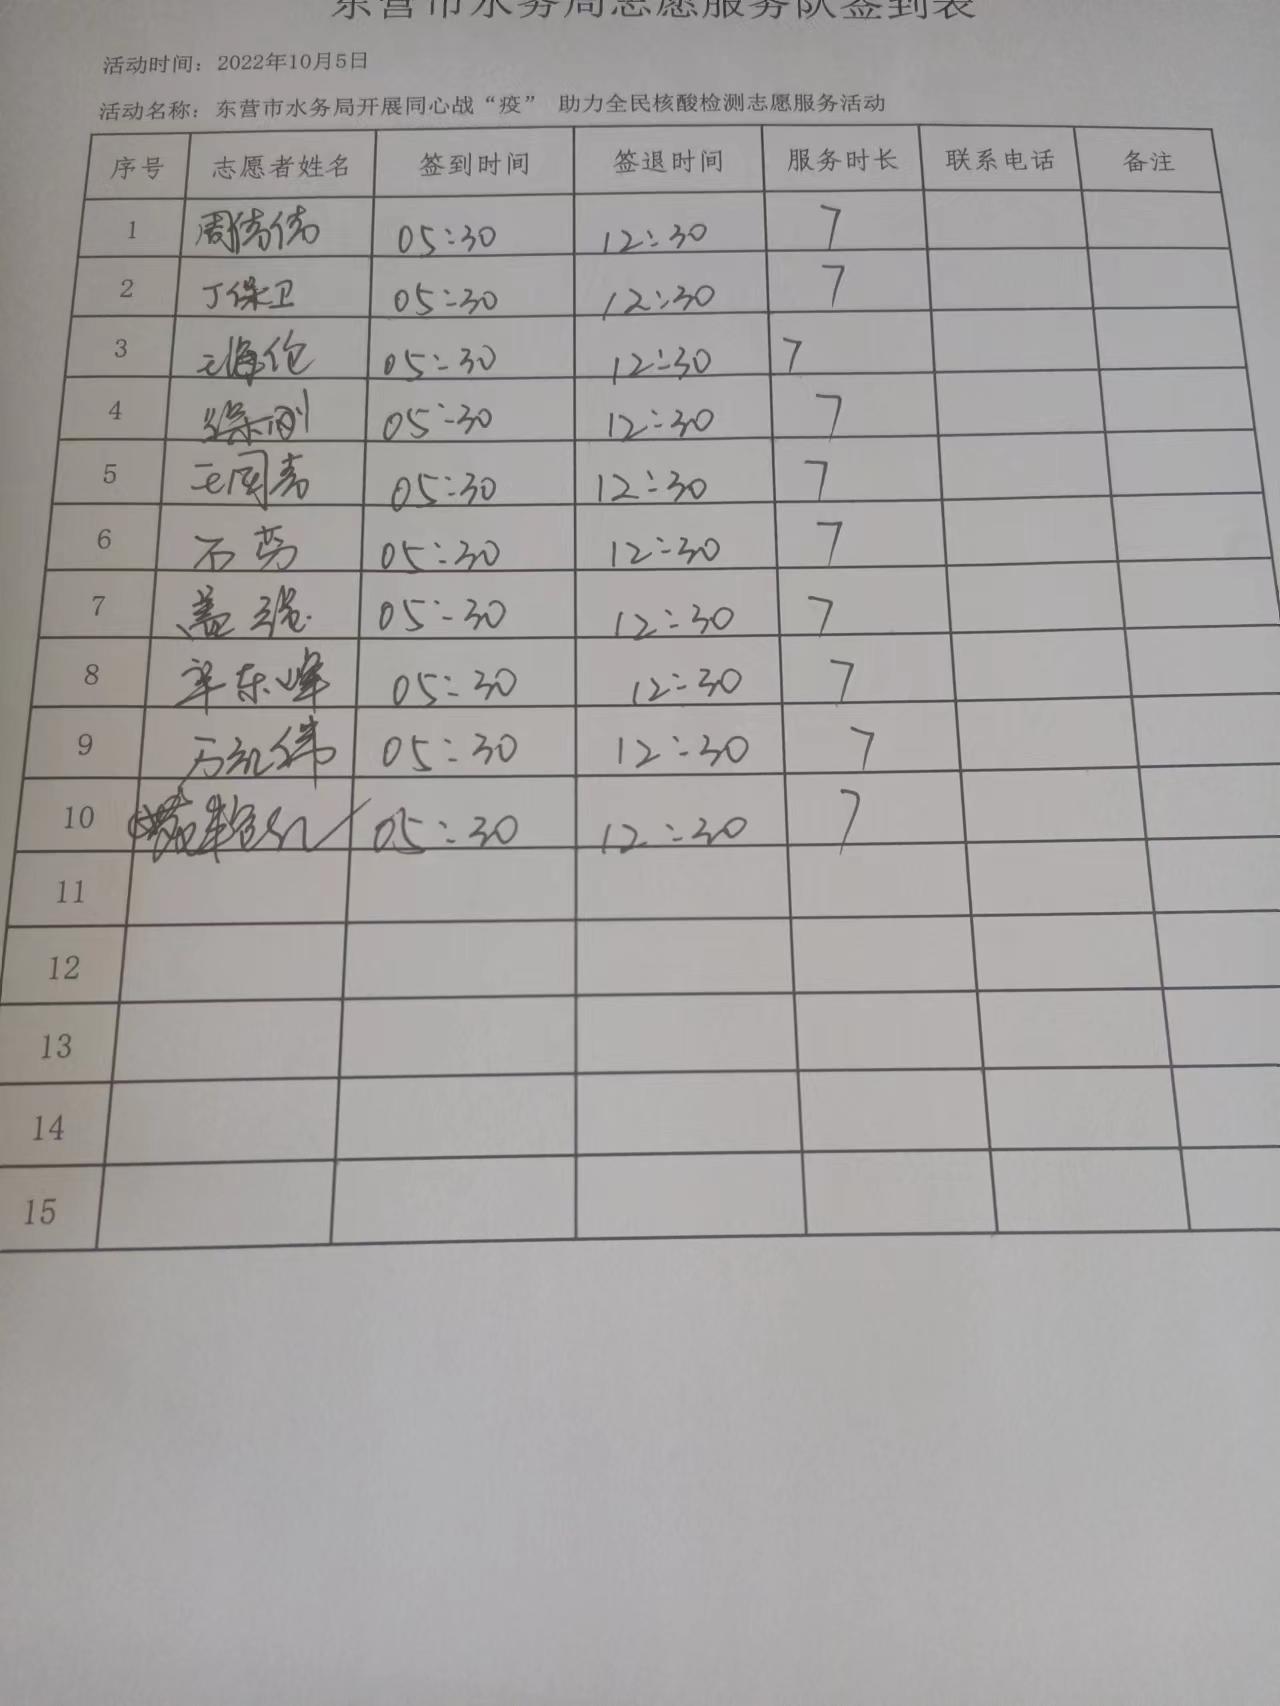 东营市水务局志愿服务队签到表
活动时间：2022年10月5日
活动名称：东营市水务局开展同心战“疫” 助力全民核酸检测志愿服务活动
序号 志愿者姓名 签到时间 签退时间 服务时长 联系电话 备注
1 周倩倩 05:30 12:30 7
2 丁保卫 05:30 12:30 7
3 王海伦 05:30 12:30 7
4 05:30 12:30 7
5 05:30 12:30 7
6 05:30 12:30 7
7 盖强 05:30 12:30 7
8 05:30 12:30 7
9 05:30 12:30 7
10 05:30 12:30 7
11
12
13
14
15